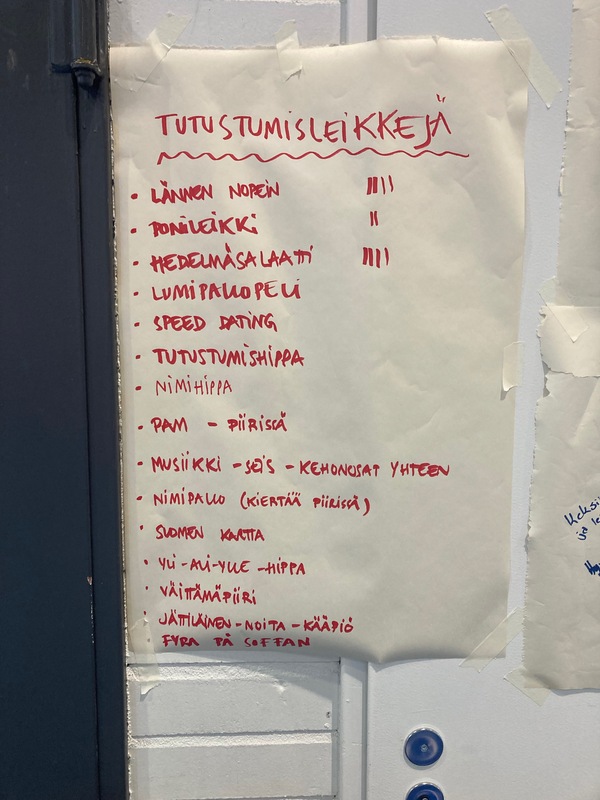 TUTUSTUMISLEIKKEJÄ
• LÄNNEN NOPEIN
• PONILEIKKI
• HEDELMÄSALAATTI
• LUMIPALLOPELI
• SPEED DATING
• TUTUSTUMISHIPPA
• NIMIHIPPA
• PAM - PIIRISSÄ
• MUSIIKKI - SEIS - KEHONOSAT YHTEEN
• NIMIPALLO (KIERTÄÄ PIIRISSÄ)
• SUOMEN KARTTA
• YLI-ALI-YLLE-HIPPA
• VÄITTÄMÄPIIRI
• JÄTTILÄINEN-NOITA-KÄÄPIÖ
FYRA PÅ SOFFAN